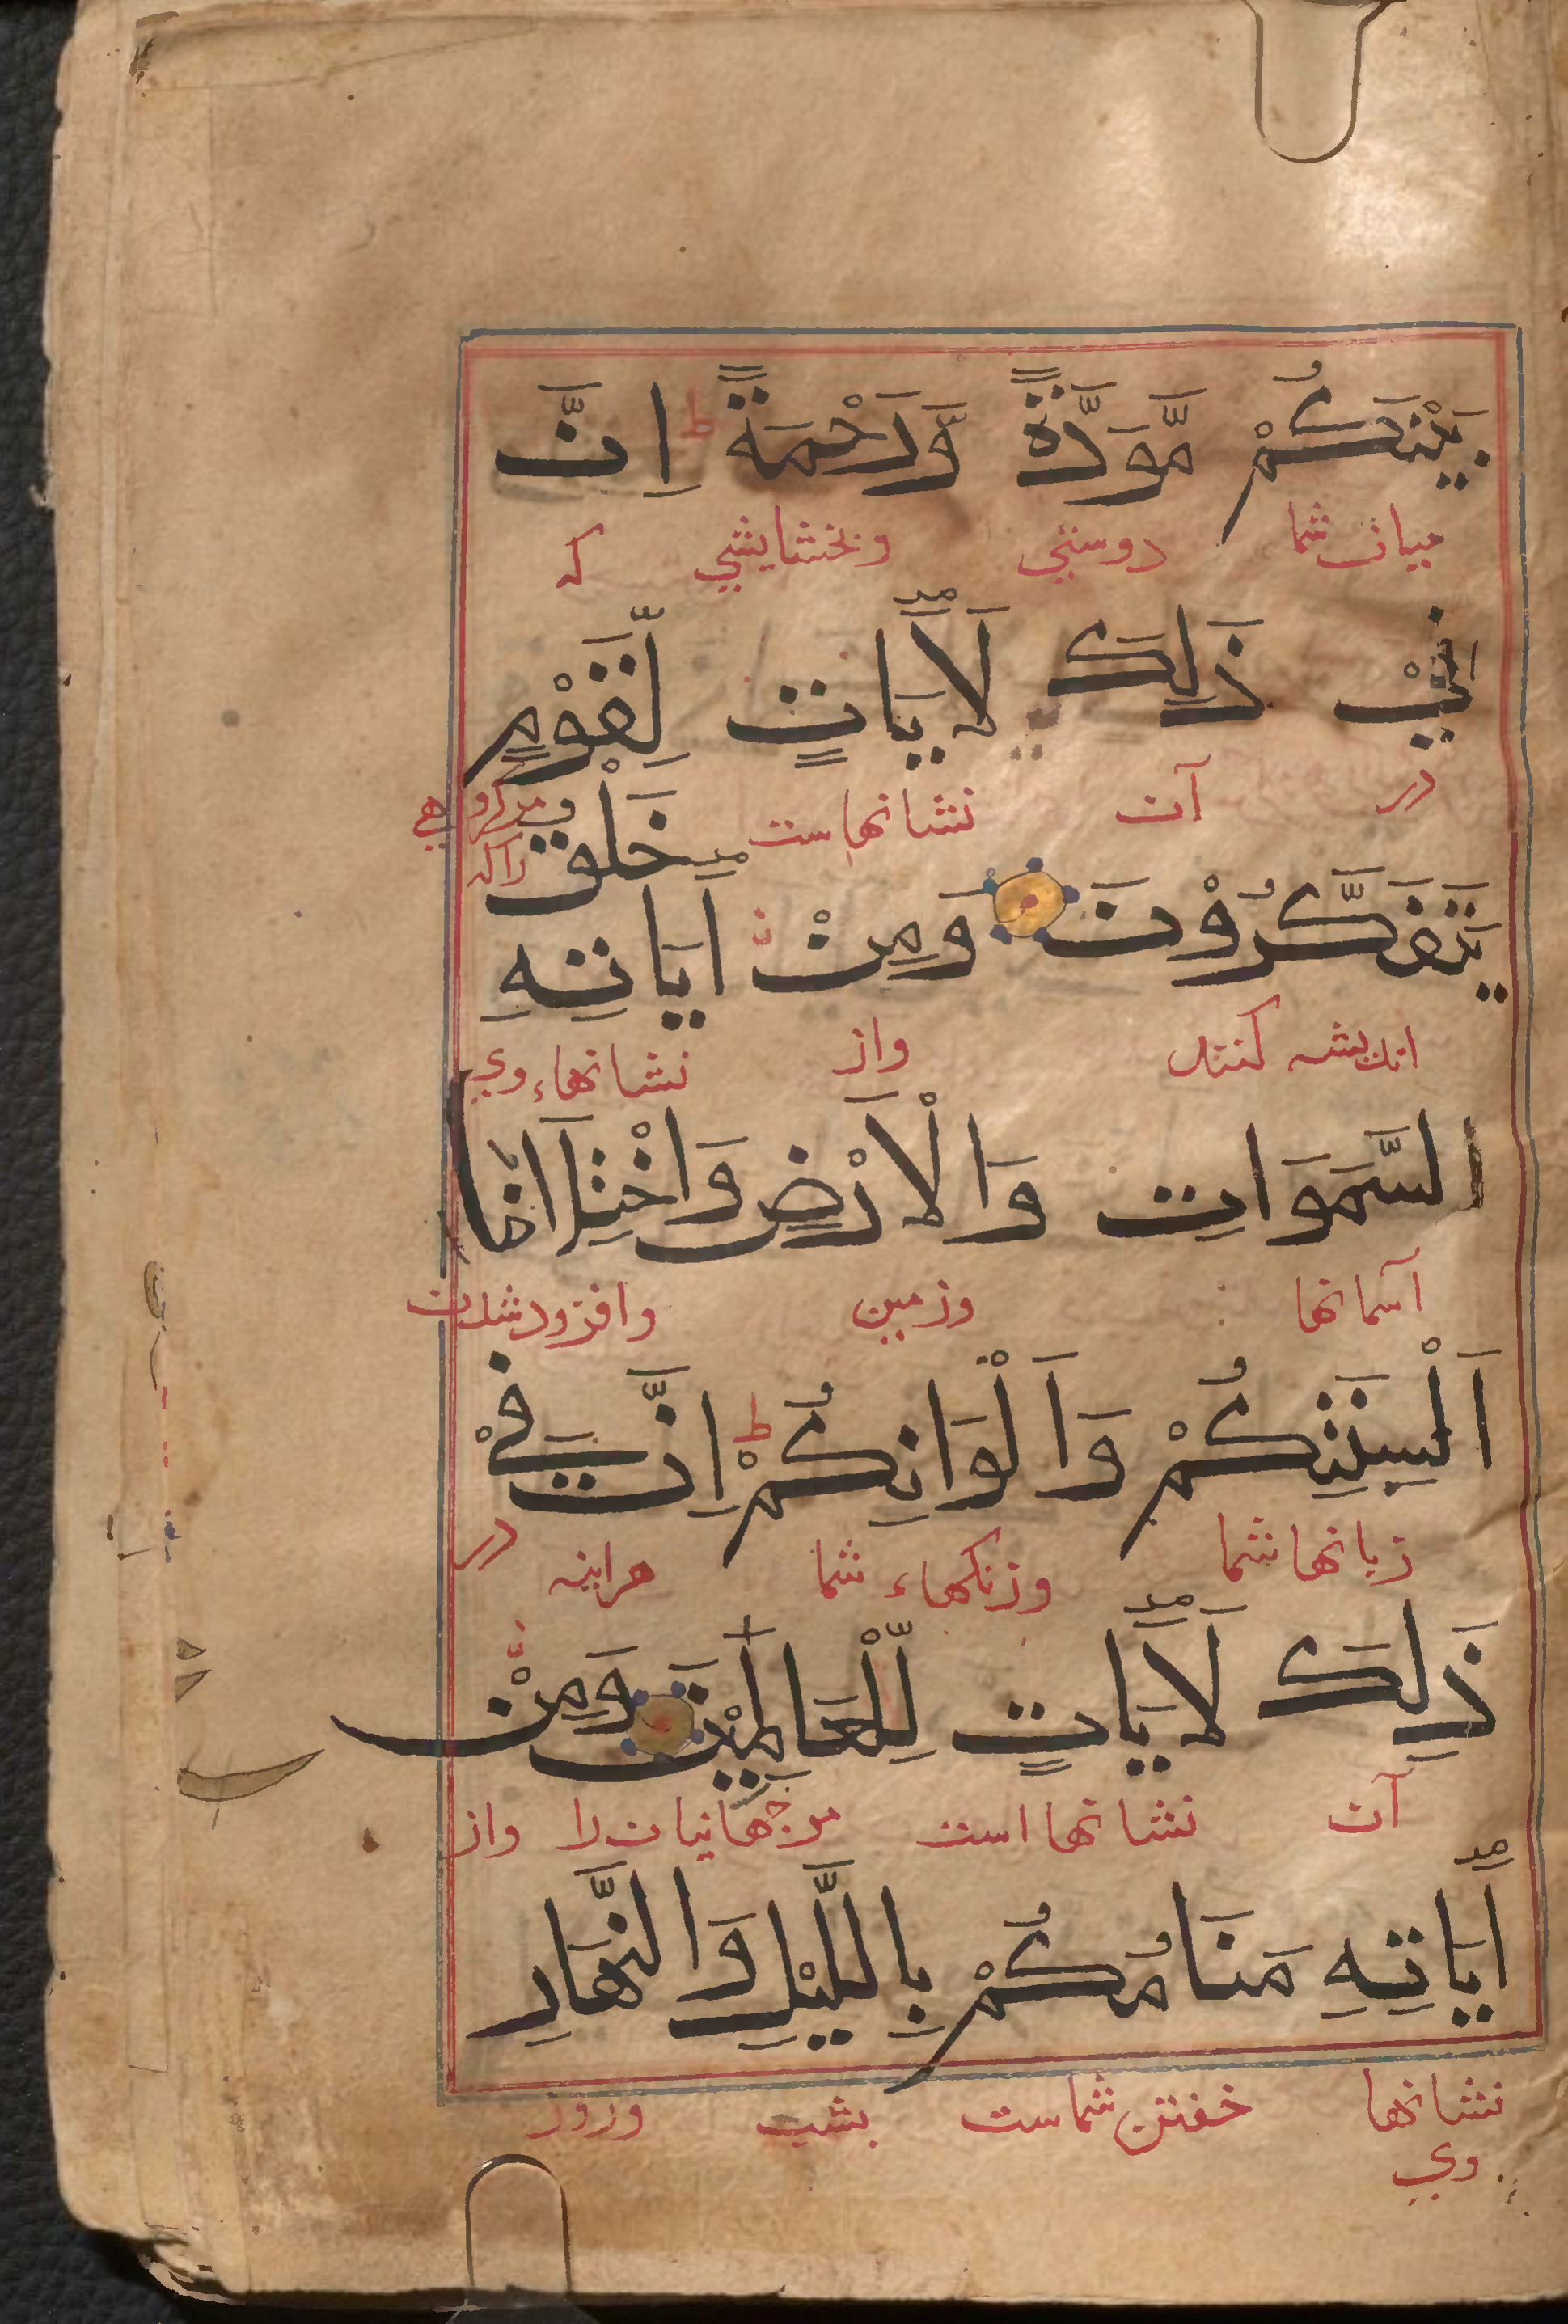 بَيْنَكُمْ مَّوَدَّةً وَّرَحْمَةً ط اِنَّ
میان شما دوستی وبخشایشی که
فِيْ ذَلِكَ لَاٰيَاتٍ لِّقَوْمٍ
در آن نشانهاست مر گروهی راکه
يَتَفَكَّرُوْنَ وَمِنْ اٰيَاتِهِ خَلْقُ
اندیشه کنند واز نشانهاء وی
السَّمَوَاتِ وَالْاَرْضِ وَاخْتِلَافُ
آسمانها وزمین وافزودشدن
اَلْسِنَتِكُمْ وَاَلْوَانِكُمْ ط اِنَّ فِيْ
زبانها شما ورنکهاء شما هراینه در
ذَلِكَ لَاٰيَاتٍ لِّلْعَالَمِيْنَ وَمِنْ
آن نشانها است مرجهانیان را واز
اٰيَاتِهِ مَنَامُكُمْ بِاللَّيْلِ وَالنَّهَارِ
نشانها وی خفتن شماست بشب وروز